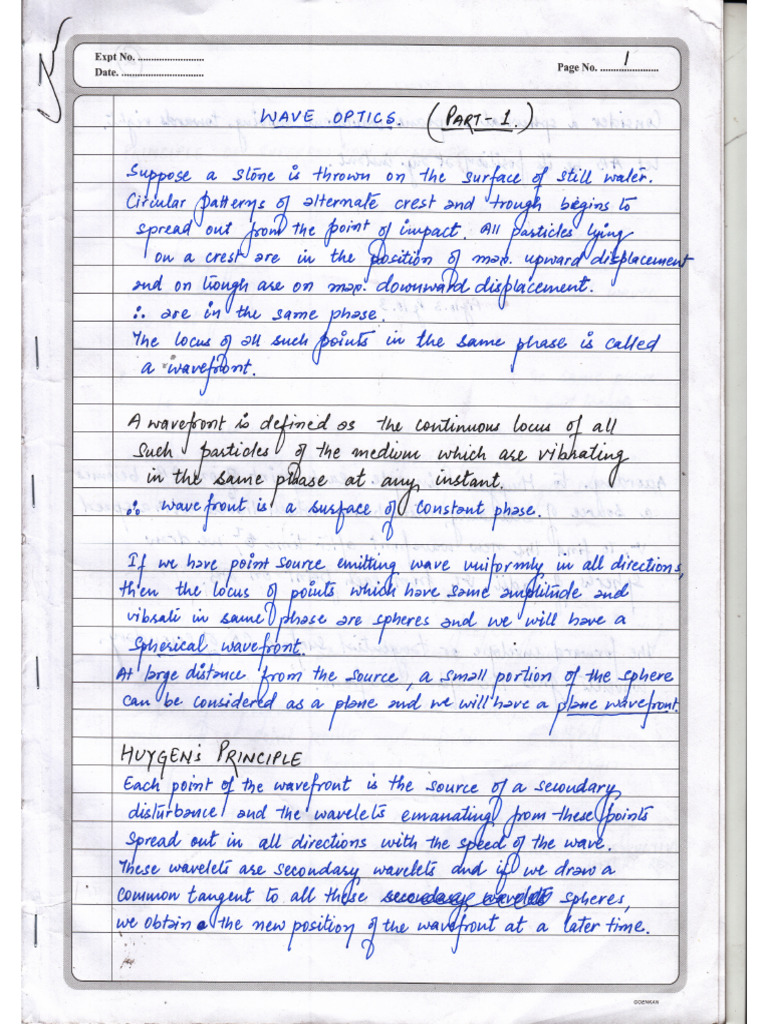 Expt No. ..........................
Date. ..............................
Page No. ...1...................
WAVE OPTICS (PART-1.)
Suppose a stone is thrown on the surface of still water.
Circular patterns of alternate crest and trough begins to
spread out from the point of impact. All particles lying
on a crest are in the position of max. upward displacement
and on trough are on max. downward displacement.
∴ are in the same phase.
The locus of all such points in the same phase is called
a wavefront.
A wavefront is defined as the continuous locus of all
such particles of the medium which are vibrating
in the same phase at any instant.
∴ wavefront is a surface of constant phase.
If we have point source emitting wave uniformly in all directions,
then the locus of points which have same amplitude and
vibrate in same phase are spheres and we will have a
spherical wavefront.
At large distance from the source, a small portion of the sphere
can be considered as a plane and we will have a plane wavefront.
HUYGEN's PRINCIPLE
Each point of the wavefront is the source of a secondary
disturbance and the wavelets emanating from these points
spread out in all directions with the speed of the wave.
These wavelets are secondary wavelets and if we draw a
common tangent to all these secondary wavelets spheres,
we obtain the new position of the wavefront at a later time.
GOENKAN